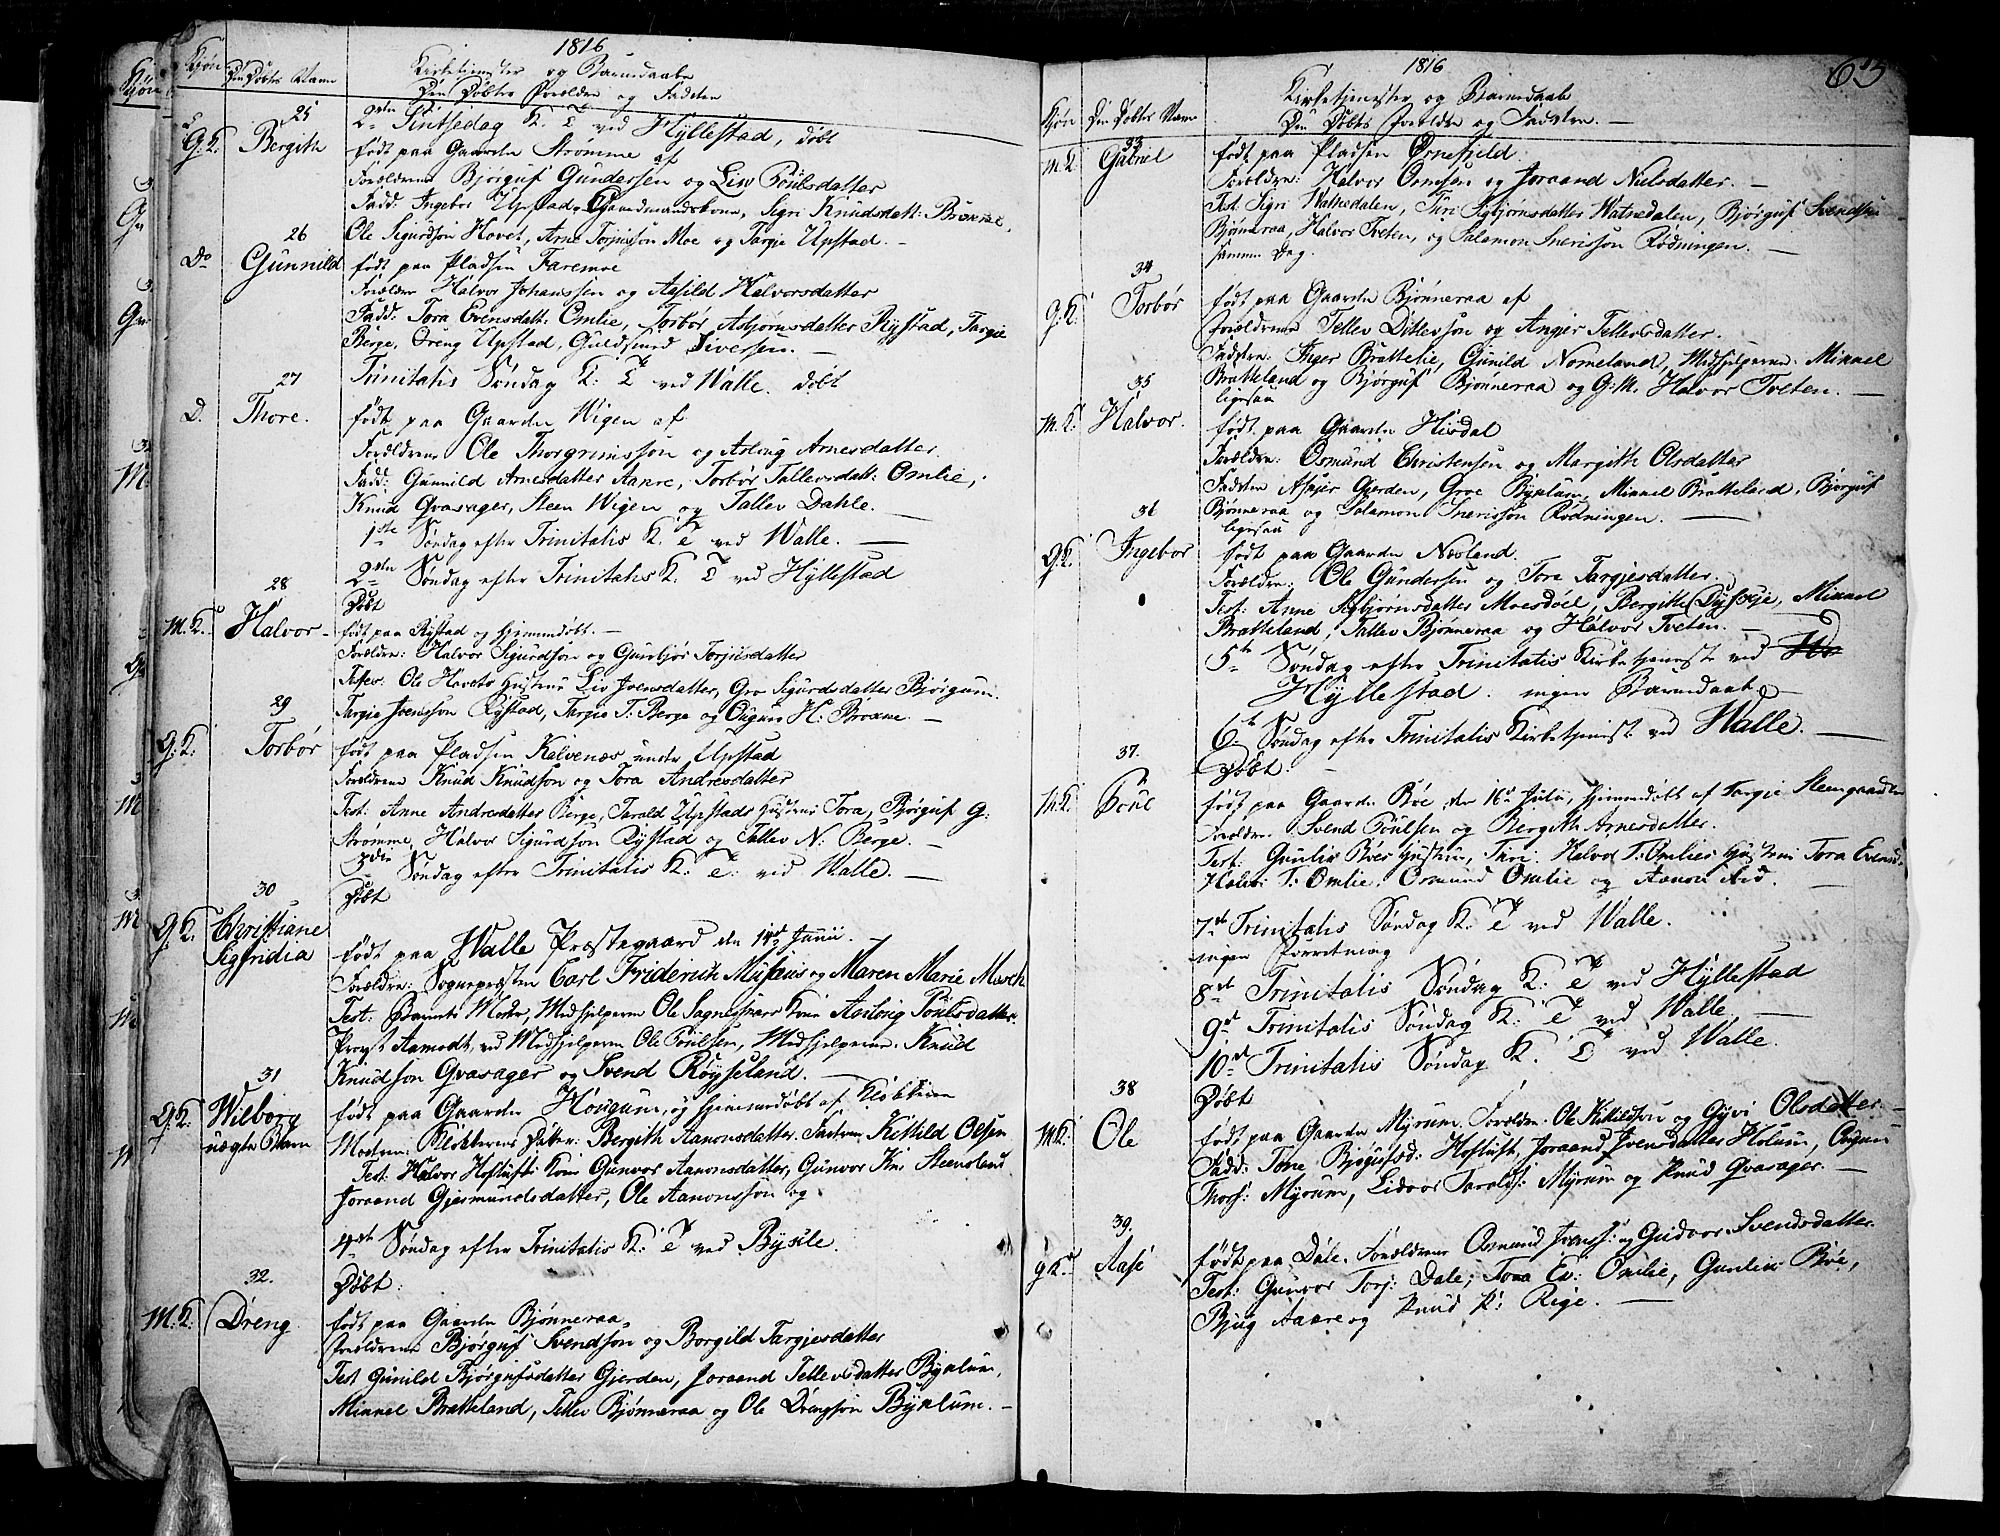 1816
Kjøn Den Døbtes Navn Kirketjenester og Barnedaab
Den Døbtes Forældre og Faddere
25
2den Pintsedag K. T. ved Hyllestad, døbt
G. K. Bergith født paa Gaarden Strømme af
Forældrene Bjørguf Gundersen og Liv Poulsdatter
Fadd: Ingebor Upstad, Sigri Knudsdatt: Brokke,
Ole Sigurdson Hovet, Arne Torjusson Moe og Targie Upstad. —
26
Do Gunnild født paa Pladsen Faremoe
Forældrene Halvor Johanssen og Aasild Halvorsdatter
Fadd: Tora Evensdatt: Omlie, Torbør Asbjørnsdatter Rystad, Targie
Berge, Dreng Upstad, Guldsmed Siversen. —
27
Trinitatis Søndag K: T ved Walle. døbt
D. Thore. født paa Gaarden Wigen af
Forældrene Ole Thorgrimsson og Aslaug Arnesdatter
Fadd: Gunnild Arnesdatter Aanre, Torbør Tallevsdatt: Omlie,
Knud Gvasager, Steen Wigen og Tallev Dahle. —
1ste Søndag efter Trinitatis K. T ved Walle. —
2den Søndag efter Trinitatis K. T ved Hyllestad
28
Døbt
M. K. Halvor født paa Rystad og hjemmedøbt. —
Forældre: Halvor Sigurdson og Gunbjør Torjusdatter
Ole Hovets Hustrue Liv Jvensdatter, Gro Sigurdsdatter Bjørgum.
29
Targie Jvensson Rystad, Targie T: Berge og H: Brokke. —
G: K: Torbør født paa Pladsen Kalvenæs under Upstad
Forældrene Knud Knudson og Tora Andresdatter
Test: Anne Andresdatter Berge, Tarald Upstads Hustrue Tora, Bjørguf G:
Strømme, Halvor Sigurdson Rystad og Tallev N: Berge. —
3die Søndag efter Trinitatis K. T: ved Walle. —
30
Døbt
G. K. Christiane
Sigfridia født paa Walle Præstegaard den 14de Junii. —
Forældre: Sognepræsten Carl Friderich Musæus og Maren Marie Morch
Test: Barnets Moder, Medhjelperen Ole Sagneskars Kone Aaslong Poulsdatter
Provst Aamodt, ved Medhjelperen Ole Poulsen, Medhjelperen Knud
Knudson Gvasager og Svend Røyseland. —
31
G. K. Wilborg
uægte Barn født paa Gaarden Hougum, og hjemmedøbt af Klokkeren
Moderen Klokkerens Datter: Bergith Aanonsdatter. Faderen Kittild Olsen
Test: Halvor Hoftufts Kone Gunvor Aanonsdatter, Gunvor Steensland
Joraand Gjermundsdatter, Ole Aanonsson og
4de Søndag efter Trinitatis K: T ved Bykle.
32.
Døbt:
M. K. Dreng født paa Gaarden Bjønneraa.
Forældrene Bjørguf Svendson og Borgild Targiesdatter
Test Gunild Bjørgufsdatter Gjerden, Joraand Tellevsdatter Byklum,
Mikkel Bratteland, Tellev Bjønneraa og Ole Drengson Byklum. —
1816
63
Kjøn Den Døbtes Navn Kirketjenester og Barnedaab
Den Døbtes Forældre og Faddere. —
33
M. K. Gabriel født paa Pladsen Ørnefjeld.
Forældre: Halvor Ormsen og Joraand Nielsdatter. —
Test. Sigri Watnedalen, Turi Asbjørnsdatter Watnedalen, Bjørguf Svendsen
Bjønneraa, Halvor Tveten, og Salamon Knerisson Rødningen. —
samme Dag.
34
G. K. Torbør født paa Gaarden Bjønneraa af
Forældrene Tellev Ditlevson og Angier Tellevsdatter.
Faddere: Inger Brattelie, Gunild Nomeland, Medhjelperen Mikkel
Bratteland og Bjørguf Bjønneraa og G: M: Halvor Tveten. —
35
ligesaa
M. K. Halvor. født paa Gaarden Hisdal
Forældre: Osmund Christensen og Margith Olsdatter
Faddere Asgier Gjerden, Groe Byklum, Mikkel Bratteland, Bjørguf
Bjønneraa og Salamon Knerisson Rødningen. —
36
ligesaa
G. K. Ingebor født paa Gaarden Næsland.
Forældre: Ole Gundersen og Tore Targiesdatter.
Test: Anne Asbjørnsdatter Moesdøel, Bergithe Dyskeje, Mikkel
Bratteland, Tallev Bjønneraa og Halvor Tveten. —
5te Søndag efter Trinitatis Kirketjeneste ved
Hyllestad. ingen Barnedaab
6te Søndag efter Trinitatis Kirketjeneste ved Walle. —
37.
Døbt: —
M. K. Poul født paa Gaarden Bøe den 16de Julii, hjemmedøbt af Targie Steensland
Forældre. Svend Poulsen og Bergith Arnesdatter.
Test: Gunlis Bøes Hustrue, Halvor T: Omlies Hustrue Tora Evensd:
Halvor T: Omlie, Osmund Omlie og Aanon Aid.
7de Trinitatis Søndag K: T ved Walle.
ingen Forretning
8de Trinitatis Søndag K: T ved Hyllestad
9de Trinitatis Søndag K: T ved Walle. —
10de Trinitatis Søndag K. T ved Walle.
38
Døbt
M. K: Ole født paa Gaarden Myrum. Forældre. Ole Kittildsen og Gyvi Olsdatter. —
Fadd: Tone Bjøgufsd: Hoftuft, Joraand Jvensdatter Holum,
Thors: Myrum, Lidvor Taralds: Myrum og Knud Gvasager. —
39.
G K. Aase født paa Dale. Forældrene Osmund Jvenss: og Gudvor Svendsdatter
Test: Gunvor Torj: Dale, Tora Ev: Omlie, Gunlis Bøe,
Bjug Aanre og Knud K: Rige. —